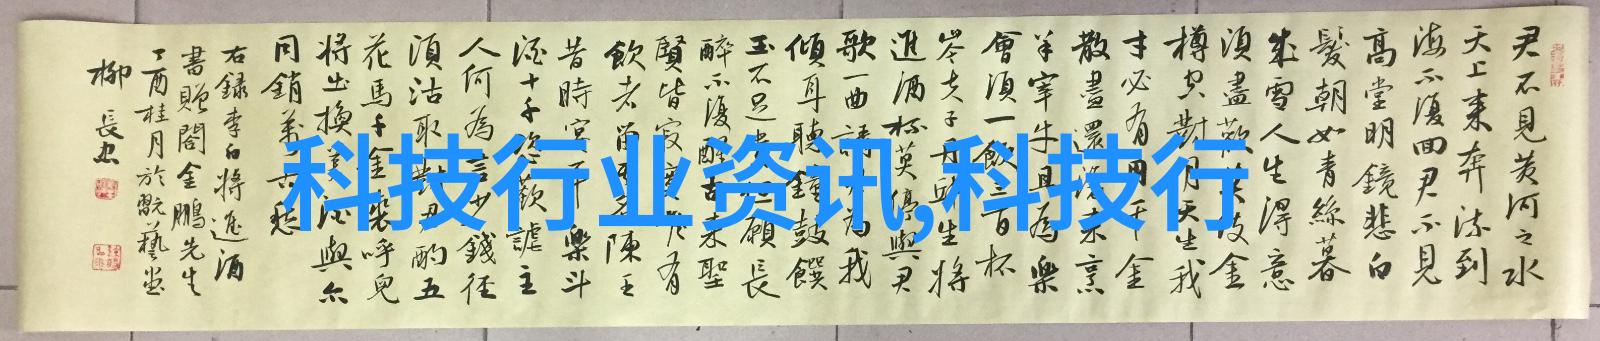 君不見黄河之水
天上来奔流到
海不復回君不見
高堂明鏡悲白
髮朝如青絲暮
成雪人生得意
須盡歡莫使金
樽空對月天生我
才必有用千金
散盡還復来烹
羊宰牛且為樂
會須一飲三百杯
岑夫子丹邱生將
進酒杯莫停與君
歌一曲請君為我
傾耳聽鐘鼓饌
玉不足貴願長
醉不復醒古来聖
賢皆寂寞惟有
飲者留其名陳王
昔時宴平樂斗
酒十千恣歡謔主
人何為言少錢徑
須沽取對君酌五
花馬千金裘呼兒
將出換美酒與尔
同銷萬古愁
右録李白將進酒
書贈閤金鵬先生
丁酉桂月於翫藝堂
柳長忠
科技行业资讯,科技行